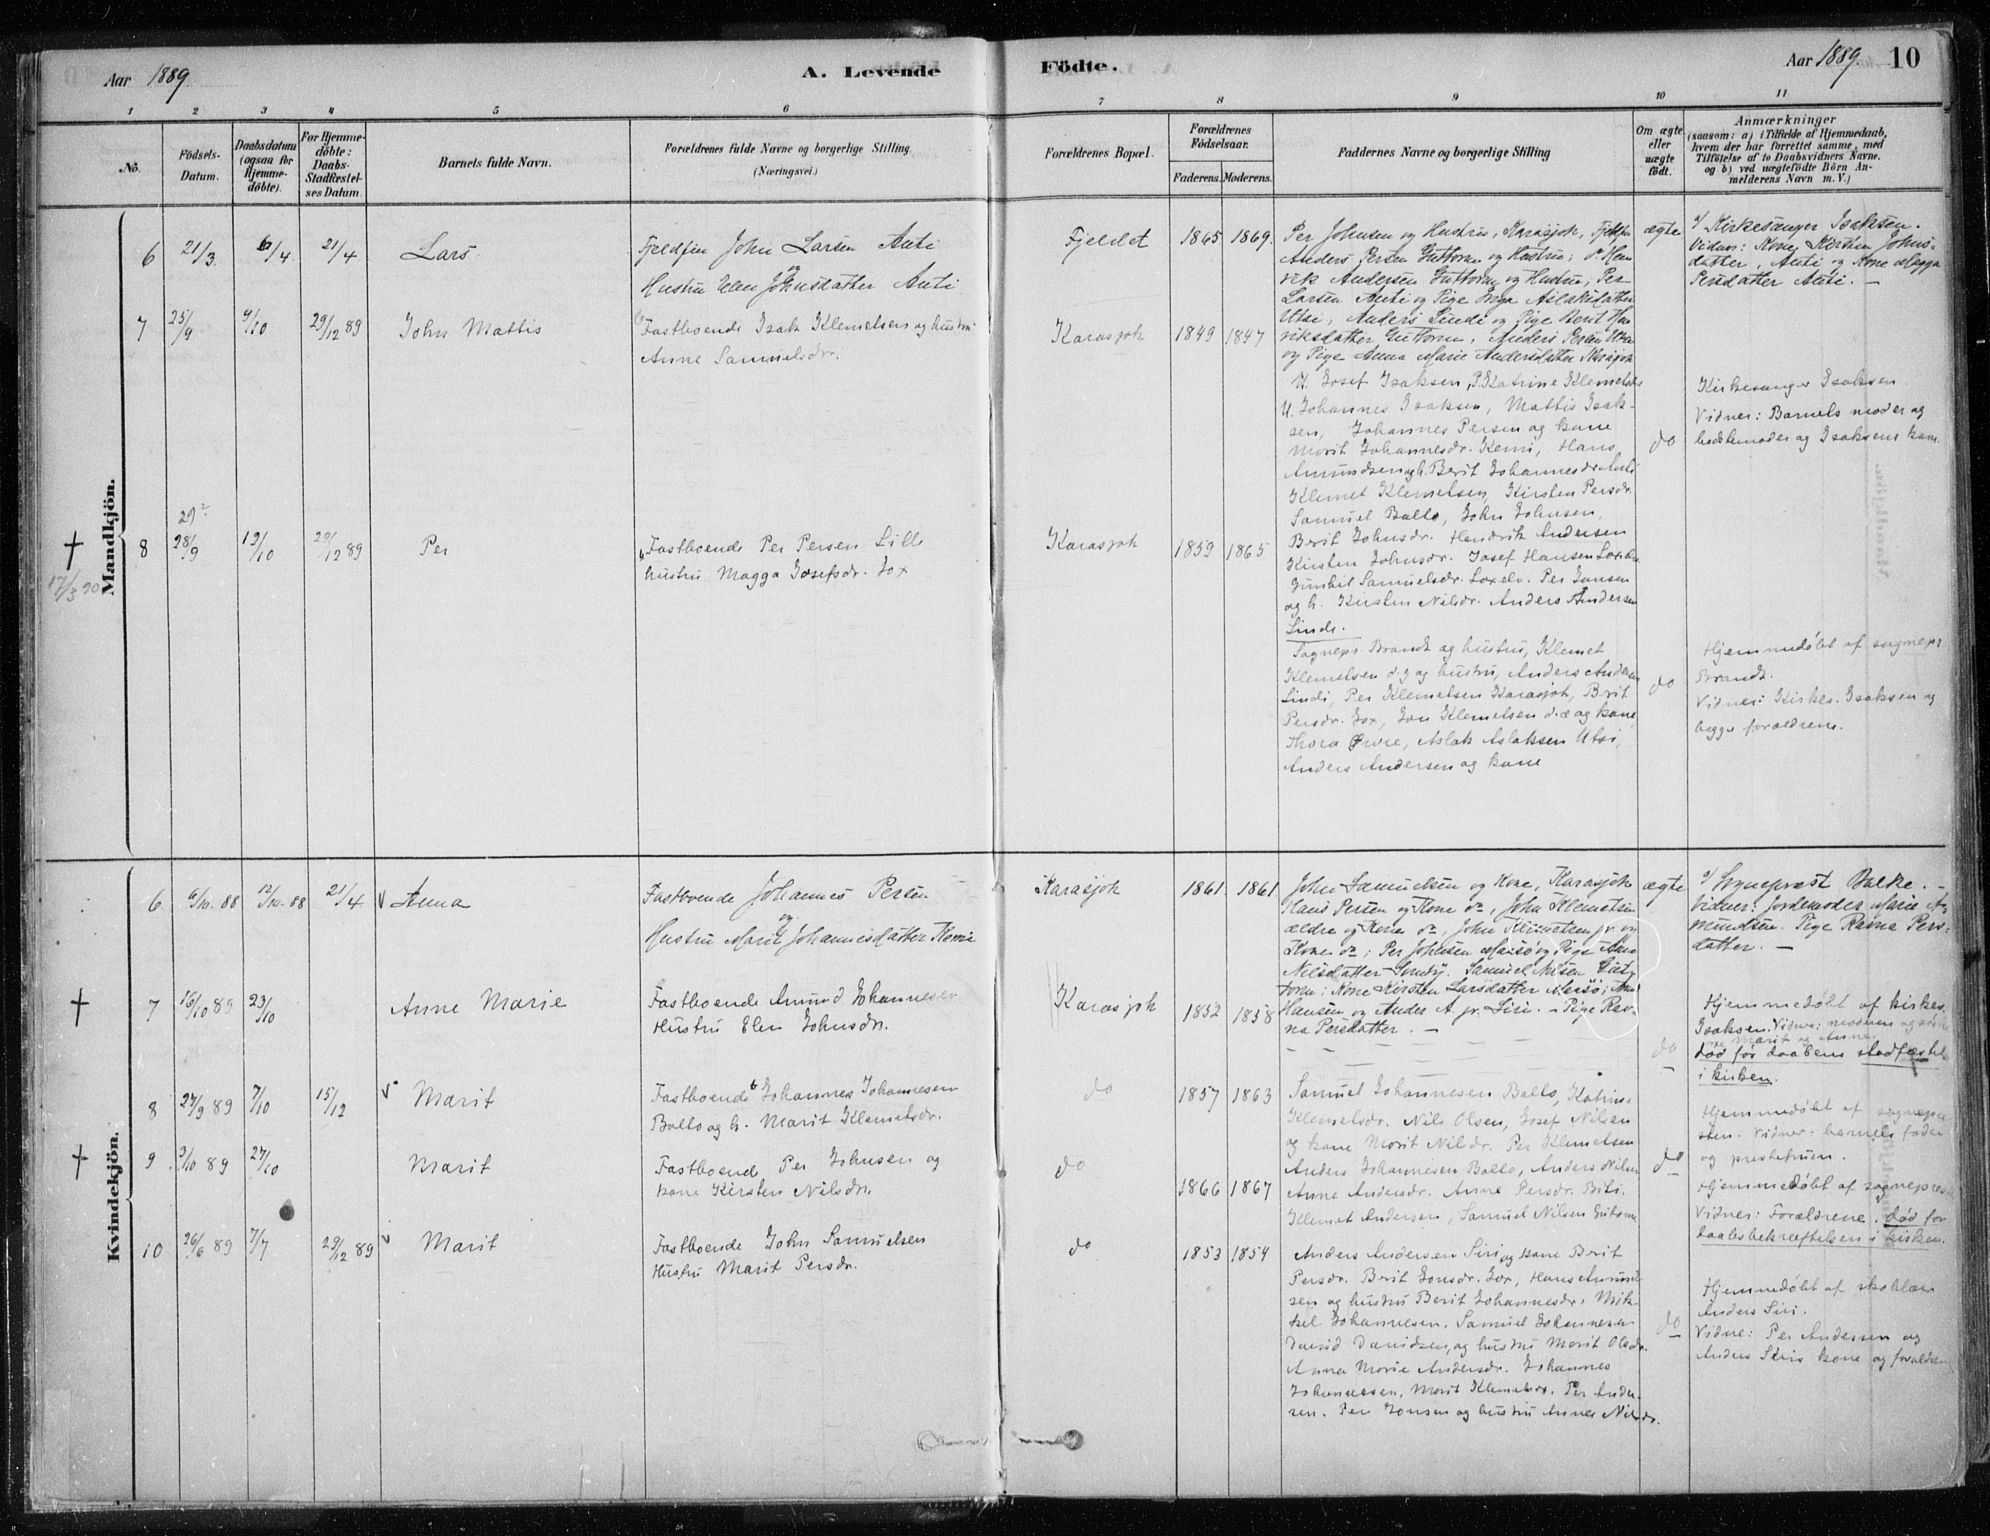 Aar 1889.
A. Levende
Födte.
Aar 1889.
10
1 2 3 4 5 6 7 8 9 10 11
No.
Födsels-
Datum.
Daabsdatum
(ogsaa for
Hjemme-
döbte).
For Hjemme-
döbte:
Daabs-
Stadfæstel-
ses Datum.
Barnets fulde Navn.
Forældrenes fulde Navne og borgerlige Stilling
(Næringsvei.)
Forældrenes Bopæl.
Forældrenes
Födselsaar.
Faderens. Moderens.
Faddernes Navne og borgerlige Stilling
Om ægte
eller
uægte
födt.
Anmærkninger
(saasom: a) i Tilfælde af Hjemmedaab,
hvem der har forrettet samme, med
Tilföielse af to Daabsvidners Navne.
og b) ved uægtefödte Börn An-
melderens Navn m. V.)
Mandkjön.
6 21/3. 6/4. 21/4 Lars
Fjeldfin John Larsen Anti
og
Hustru Elen Johnsdatter Anti
Fjeldet 1865 1869.
Per Johnsen og Hustru, Karasjok,
Anders Persen Guttorm og Hustru; Hen-
rik Andersen Guttorm og Hustru; Per
Larsen Anti og Pige Inga Aslaksdatter
Utsi, Anders Lindi og Pige Berit Hen-
riksdatter Guttorm, Anders Persen Utsi
og Pige Anna Marie Andersdatter Karasjok
ægte
a/ Kirkesanger Isaksen.
Vidner: Kone Kirsten Johns-
datter, Anti og Kone Magga
Persdatter Anti. —
7 25/9 9/10 29/12 89 John Mattis
Fastboende Isak Klemetsen og hustru
Anne Samuelsdr.
Karasjok 1849 1847
U. Josef Isaksen, P. Katrine Klemetsdr
U. Johannes Isaksen, Mattis Isak-
sen, Johannes Persen og kone
Marit Johannesdr. Kemi, Hans
Amundsen og h. Berit Johannesdr. Anti
Klemet Klemetsen, Kirsten Persdr.
do
Kirkesanger Isaksen.
Vidner: Barnets moder og
bedstemoder og Isaksens kone.
† 17/3 90
8 29? 28/9 12/10 29/12 89 Per
Fastboende Per Persen Lille
hustru Magga Josefsdr. Jox
Karasjok 1859 1865
Samuel Balto, John Johnsen,
Berit Johnsdr. Hendrik Andersen
Kirsten Johnsdr. Josef Hansen
Gunhil Samuelsdr. Laxelv. Per Jonsen
og h. Kirsten Nilsdr. Anders Andersen
Lindi.
Sognepr. Brandt og hustru, Klemet
Klemetsen d.y og hustru, Anders Andersen
Lindi, Per Klemetsen Karasjok, Berit
Persdr. Jox, Jon Klemetsen d.æ og kone
Thora Øvre, Aslak Aslaksen Utsi,
Anders Andersen og kone
do
Hjemmedøbt af sognepr.
Brandt.
Vidner: Kirkes. Isaksen og
begge forældrene.
Kvindekjön.
6. 6/10. 88 12/10. 88 21/4 Anna
Fastboende Johannes Persen
og
Hustru Marit Johannesdatter Kemi
Karasjok 1861. 1861.
John Samuelsen og Kone, Karasjok
Hans Persen og Kone do, John Klemetsen
ældre og Kone do, John Klemetsen jr. og
Kone do; Per Johnsen og Pige Ane
Nilsdatter. Samuel Nilsen Gut-
torm; Kone Kirsten Larsdatter
Hansen og Anders A. jr. Siri. — Pige Rav-
na Persdatter. —
ægte
a/ Sognepræst Balke. —
Vidner: Jordemoder Marie A-
mundsen. Pige Ravna Pers-
datter. —
† 7 16/10 89 23/10 Anne Marie
Fastboende Amund Johannesen
Hustru Elen Johnsdr.
Karasjok 1852 1858
do
Hjemmedøbt af kirkes.
Isaksen. Vidner: moderen og
Marit og Anne
død før daabens stadfæstelse
i kirken.
8 27/9 89 7/10 15/12 Marit
Fastboende Johannes Johannesen
Balto og h. Marit Klemetsdr.
do 1857 1863
Samuel Johannesen Balto, Katrine
Klemetsdr. Nils Olsen, Josef Nilsen
og kone Marit Nilsdr. Per Klemetsen
Anders Johannesen Balto, Anders Nilsen
do
Hjemmedøbt af sognepræ-
sten. Vidner: barnets fader
og prestefruen.
† 9 3/10 89 27/10 Marit
Fastboende Per Johnsen og
kone Kirsten Nilsdr.
do 1866 1867
Anne Andersdr. Anne Persdr. Biti.
Klemet Andersen, Samuel Nilsen Guttorm
Hjemmedøbt af sogneprest
Vidner: Forældrene. død før
daabsbekræftelsen i kirken.
10 26/6 89 7/7 29/12 89 Marit
Fastboende John Samuelsen
Hustru Marit Persdr.
do 1853 1854
Anders Andersen Siri og kone Berit
Persdr. Berit Jonsdr. Jox, Hans Amund-
sen og hustru Berit Johannesdr. Mik-
kel Johannesen. Samuel Johannesen
David Davidsen, og hustru Marit Olsdr.
Anna Marie Andersdr. Johannes
Johannesen, Marit Klemetsdr. Per Ander-
sen. Per Jonsen og hustru Anne Nilsdr.
do
Hjemmedøbt af skolelær.
Anders Siri.
Vidne: Per Andersen og
Anders Siris kone og forældrene